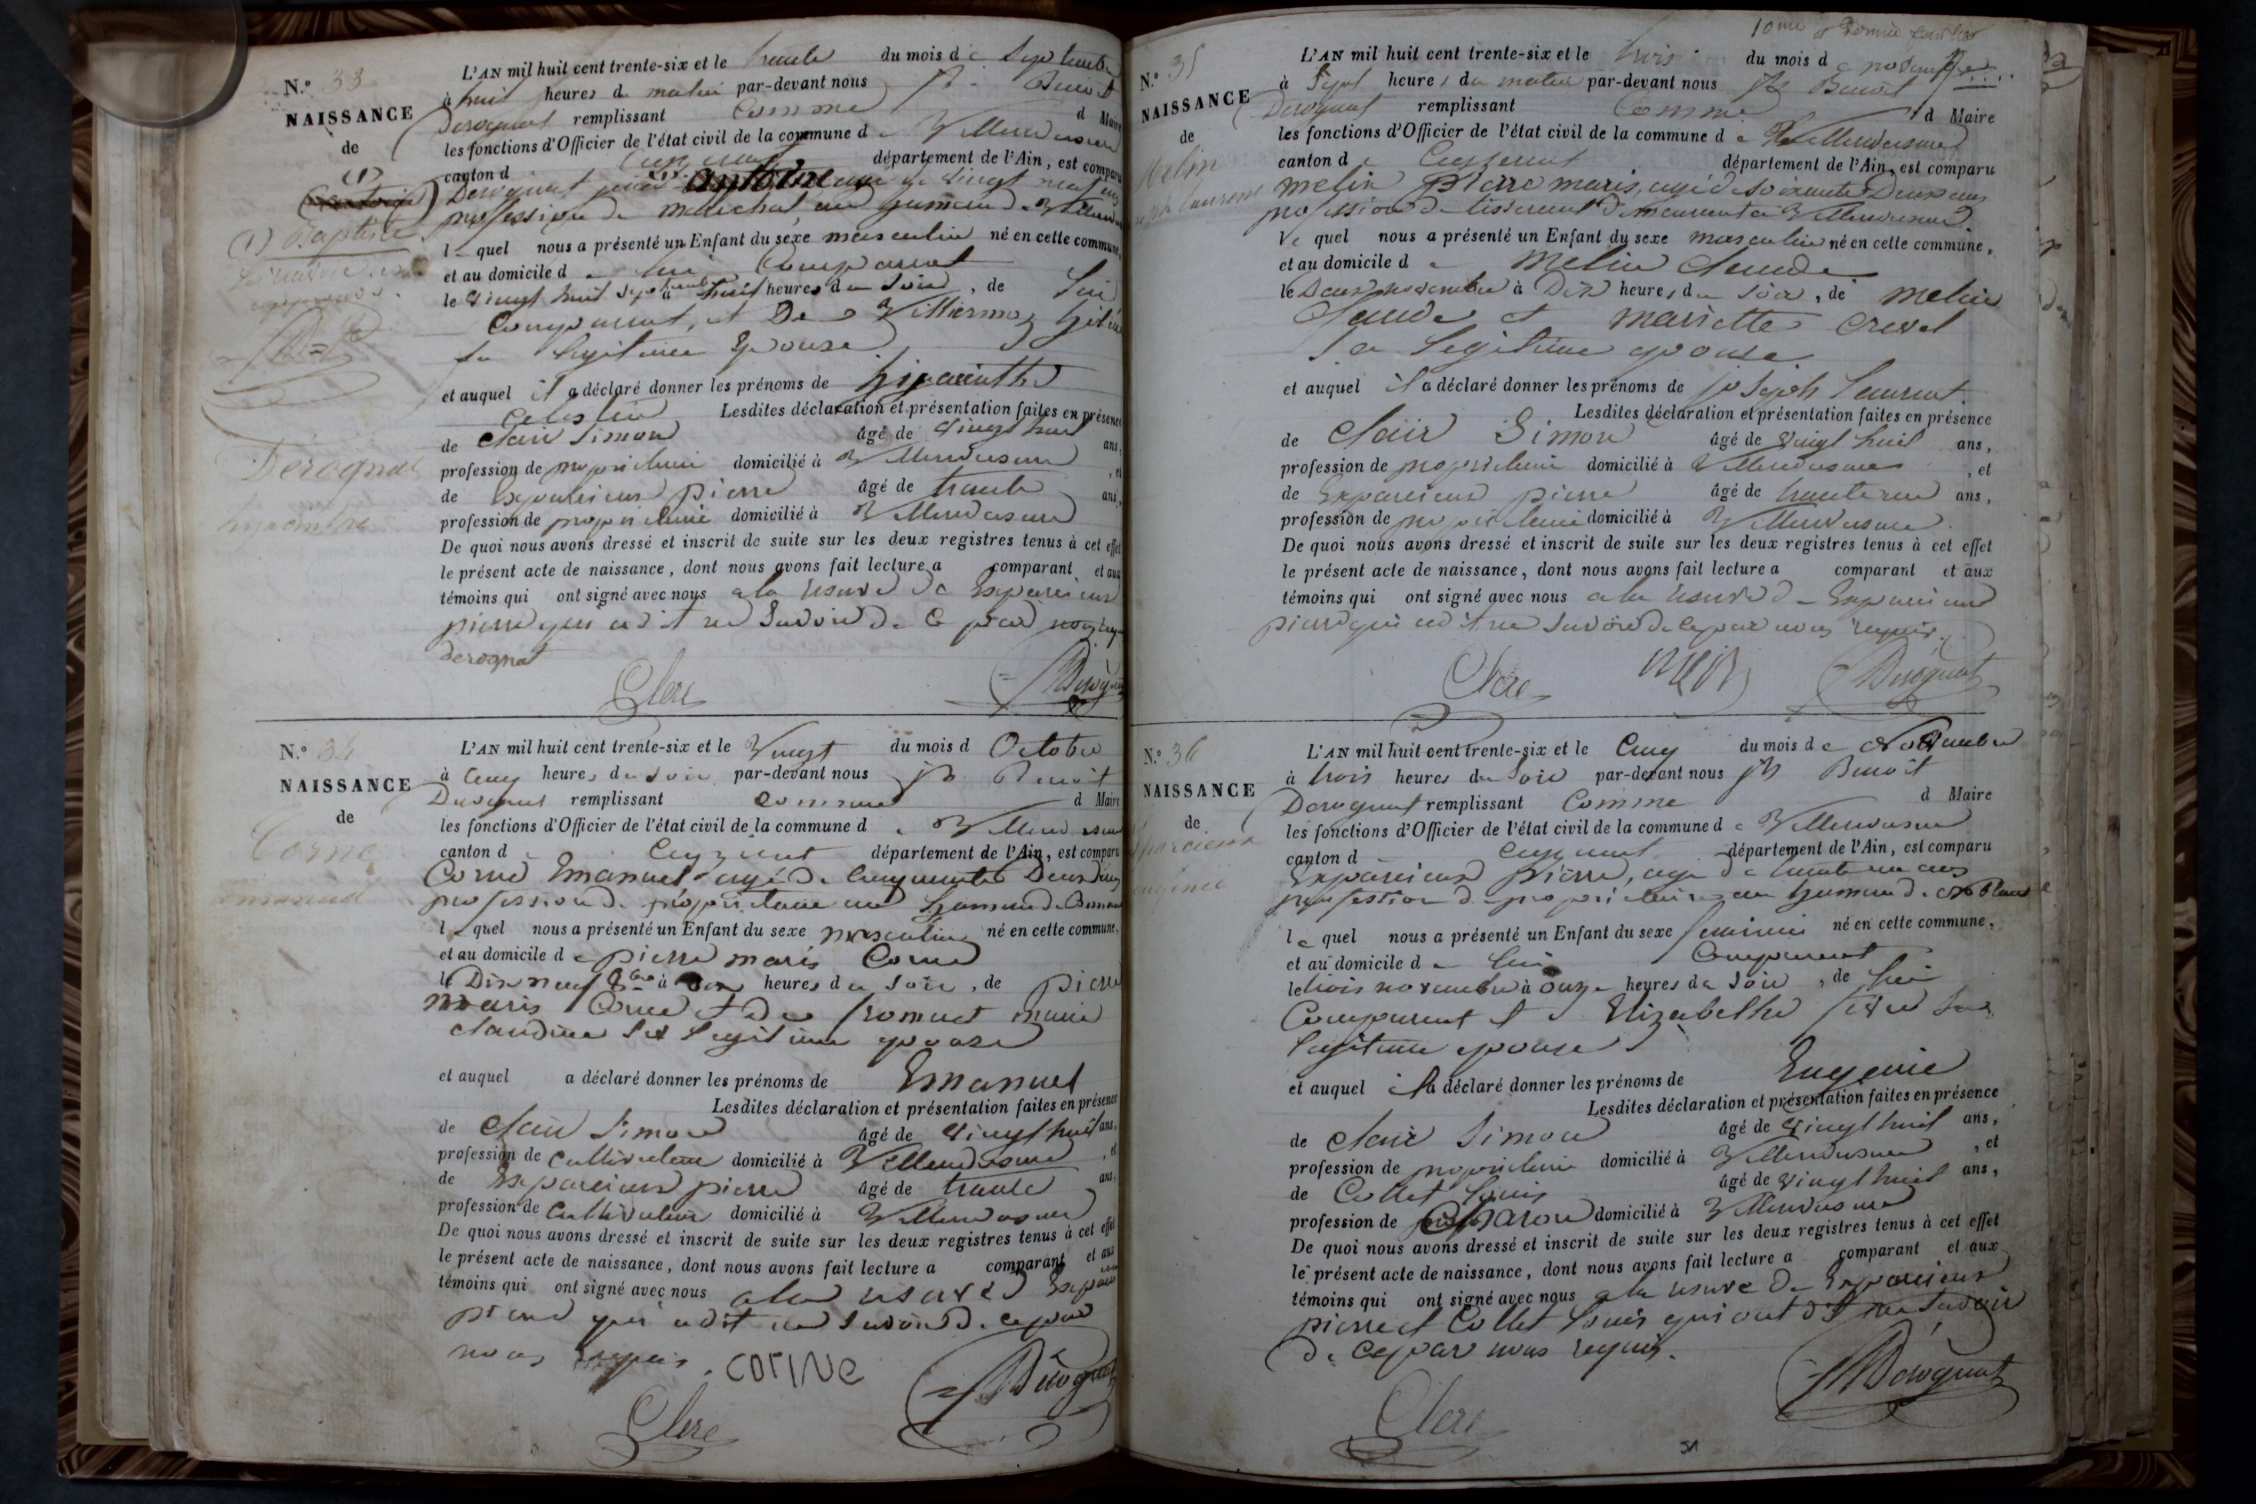 N.º 33
NAISSANCE
de
(1) Baptiste
Derognat
hyacinthe
L'AN mil huit cent trente-six et le trente du mois de Septembre
à huit heures du matin par-devant nous Benoit
Derognat remplissant Comme d Maire
les fonctions d'Officier de l'état civil de la commune de Villereversure
canton d département de l'Ain, est comparu
Derognat
profession de maréchal au hameau de
lequel nous a présenté un Enfant du sexe masculin né en cette commune,
et au domicile de lui Comparant
le vingt huit Septembre à huit heures du Soir, de lui
Comparant, et De
Sa légitime Epouse
et auquel il a déclaré donner les prénoms de hyacinthe
Celestin Lesdites déclaration et présentation faites en présence
de Clair Simon âgé de vingt huit ans,
profession de propriétaire domicilié à Villereversure, et
de Eparcieux pierre âgé de trente ans,
profession de propriétaire domicilié à Villereversure
De quoi nous avons dressé et inscrit de suite sur les deux registres tenus à cet effet
le présent acte de naissance, dont nous avons fait lecture a comparant et aux
témoins qui ont signé avec nous a la reserve de Eparcieux
pierre qui a dit ne Savoir de ce par nous requis
derognat
Clerc Derognat
N.º 34
NAISSANCE
de
Corne
emanuel
L'AN mil huit cent trente-six et le Vingt du mois d Octobre
à Cinq heures du Soir par-devant nous jh Benoit
Derognat remplissant comme d Maire
les fonctions d'Officier de l'état civil de la commune de Villereversure
canton de Ceyzeriat département de l'Ain, est comparu
Corne Emanuel agé de Cinquante Deux ans
profession de propriétaire au hameau de
lequel nous a présenté un Enfant du sexe masculin né en cette commune,
et au domicile de pierre marie Corne
le Dix neuf 8bre à heures du Soir, de pierre
marie Corne et de marie
claudine Sa legitime epouse
et auquel a déclaré donner les prénoms de Emanuel
Lesdites déclaration et présentation faites en présence
de Clair Simon âgé de vingt huit ans,
profession de Cultivateur domicilié à Villereversure, et
de Eparcieux pierre âgé de trente ans,
profession de Cultivateur domicilié à Villereversure
De quoi nous avons dressé et inscrit de suite sur les deux registres tenus à cet effet
le présent acte de naissance, dont nous avons fait lecture a comparant et aux
témoins qui ont signé avec nous a la reserve d Eparcieux
pierre qui a dit ne Savoir de ce par
nous requis. corNe
Clerc Derognat
10me et Dernier feuillet
N.º 35
NAISSANCE
de
Melin
joseph laurent
L'AN mil huit cent trente-six et le trois du mois de novembre
à Sept heures du matin par-devant nous jh Benoit
Derognat remplissant Comme d Maire
les fonctions d'Officier de l'état civil de la commune de Villereversure
canton de Ceyzeriat département de l'Ain, est comparu
melin pierre marie, agé de soixante Deux ans
profession de tisserand Demeurant a Villereversure
lequel nous a présenté un Enfant du sexe masculin né en cette commune,
et au domicile de Melin claude
le Deux novembre à Dix heures du Soir, de melin
Claude et mariette
Sa legitime epouse
et auquel il a déclaré donner les prénoms de joseph laurent.
Lesdites déclaration et présentation faites en présence
de Clair Simon âgé de vingt huit ans,
profession de propriétaire domicilié à Villereversure, et
de Eparcieux pierre âgé de trente un ans,
profession de propriétaire domicilié à Villereversure.
De quoi nous avons dressé et inscrit de suite sur les deux registres tenus à cet effet
le présent acte de naissance, dont nous avons fait lecture a comparant et aux
témoins qui ont signé avec nous a la reserve de Eparcieux
pierre qui a dit ne Savoir de ce par nous requis.
Clerc Derognat
N.º 36
NAISSANCE
de
Eparcieux
eugénie
L'AN mil huit cent trente-six et le Cinq du mois de Novembre
à trois heures du Soir par-devant nous jh Benoit
Derognat remplissant Comme d Maire
les fonctions d'Officier de l'état civil de la commune de Villereversure
canton d Ceyzeriat département de l'Ain, est comparu
Eparcieux pierre, agé de trente un ans
profession de propriétaire au hameau de
lequel nous a présenté un Enfant du sexe feminin né en cette commune,
et au domicile de lui Comparant
le trois novembre à onze heures du Soir, de lui
Comparant et Elizabethe Sa
legitime epouse
et auquel il a déclaré donner les prénoms de Eugenie
Lesdites déclaration et présentation faites en présence
de Clair Simon âgé de vingt huit ans,
profession de propriétaire domicilié à Villereversure, et
de Collet Louis âgé de vingt huit ans,
profession de Charon domicilié à Villereversure
De quoi nous avons dressé et inscrit de suite sur les deux registres tenus à cet effet
le présent acte de naissance, dont nous avons fait lecture a comparant et aux
témoins qui ont signé avec nous a la reserve de Eparcieux
pierre et Collet Louis qui ont dit ne Savoir
de ce par nous requis.
Clerc Derognat